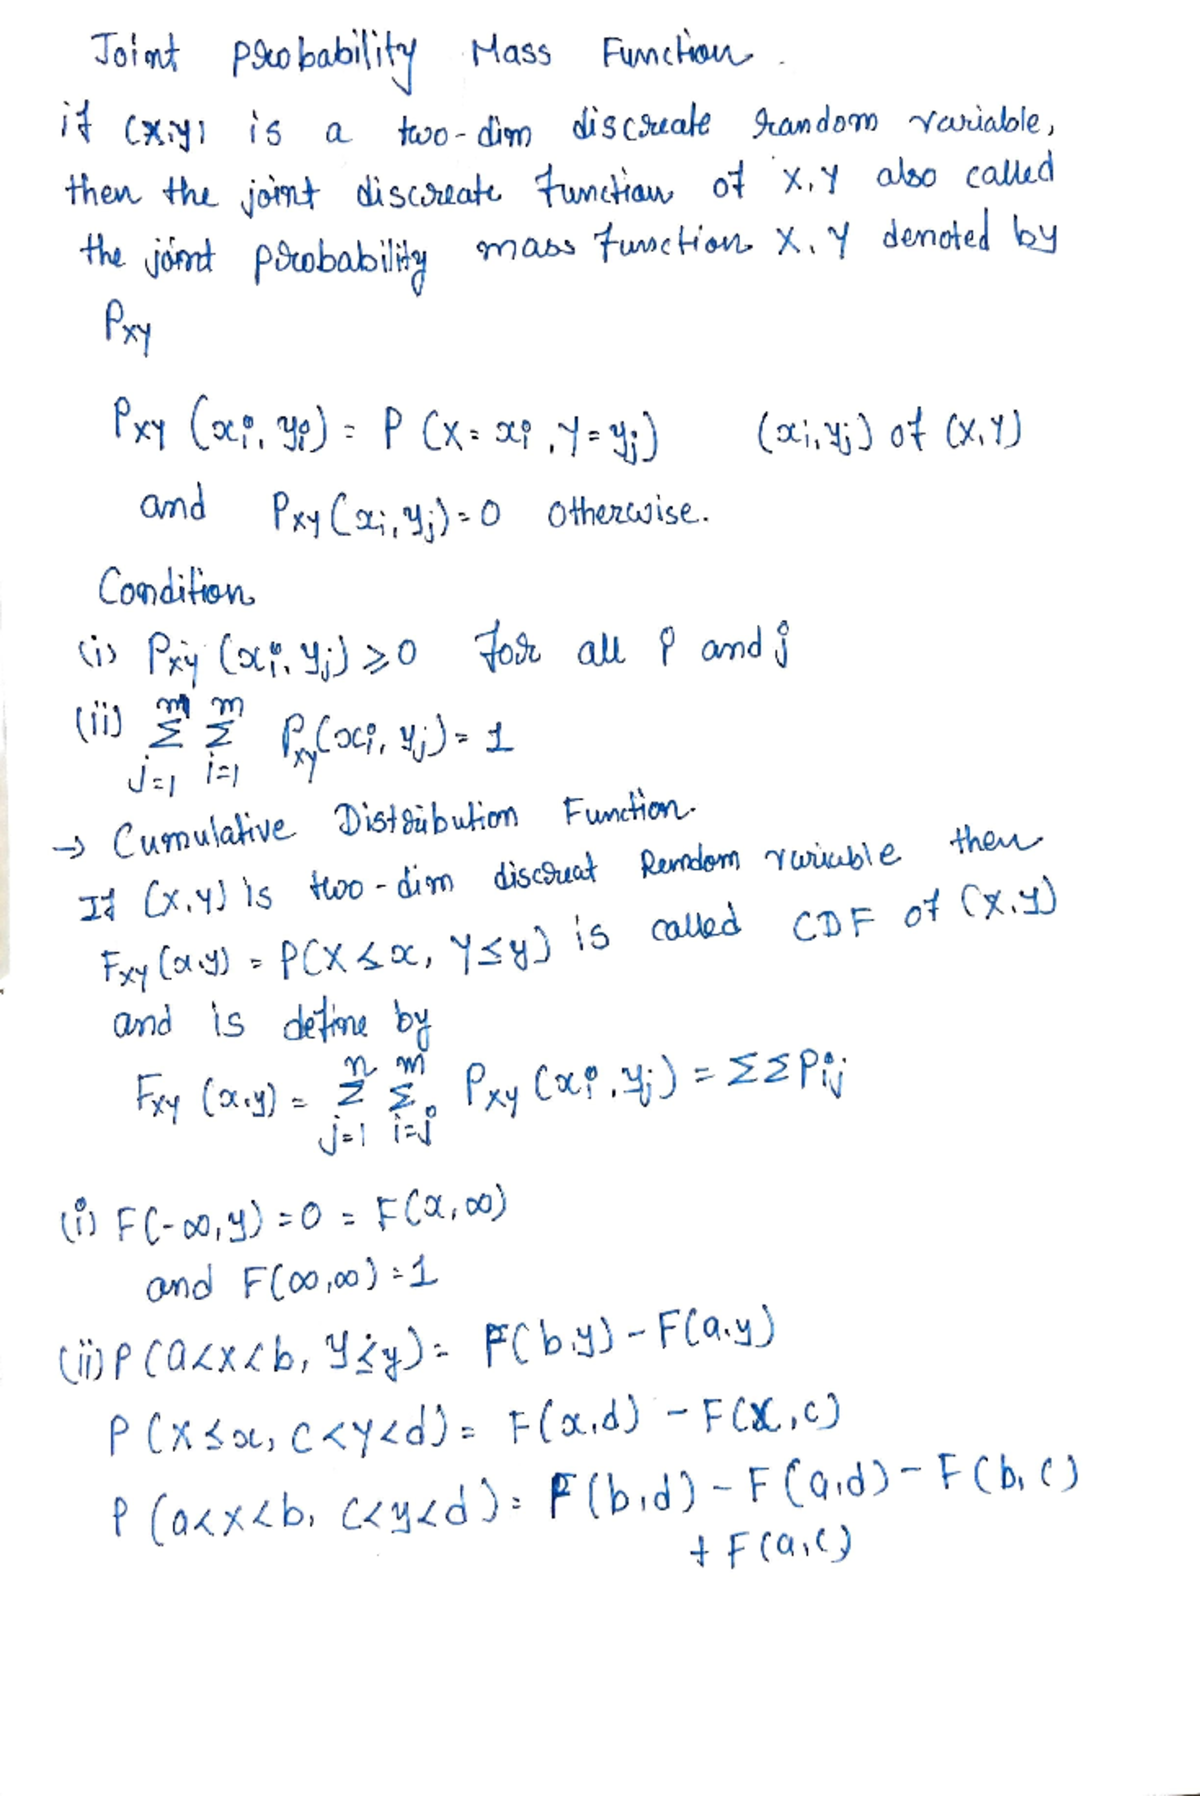 Joint probability Mass Function.
if (x,y) is a two-dim discreate random variable,
then the joint discreate function of X,Y also called
the joint probability mass function X,Y denoted by
Pxy
Pxy (xi, yi) = P (X = xi, Y = yj) (xi, yj) of (X,Y)
and Pxy (xi, yj) = 0 otherwise.
Condition
(i) Pxy (xi, yj) ≥ 0 for all i and j
(ii) Σ_{j=1}^{m} Σ_{i=1}^{m} Pxy(xi, yj) = 1
→ Cumulative Distribution Function.
If (x,y) is two-dim discreat Remdom variable then
Fxy (x,y) = P(X ≤ x, Y ≤ y) is called CDF of (X,Y)
and is define by
Fxy (x,y) = Σ_{j=1}^{n} Σ_{i=j}^{m} Pxy (xi, yj) = ΣΣPij
(i) F(-∞, y) = 0 = F(x, ∞)
and F(∞, ∞) = 1
(ii) P (a<x<b, Y≤y) = F(b,y) - F(a,y)
P (X ≤ x, c<y<d) = F(x,d) - F(X,c)
P (a<x<b, c<y<d) = F(b,d) - F(a,d) - F(b,c)
+ F(a,c)